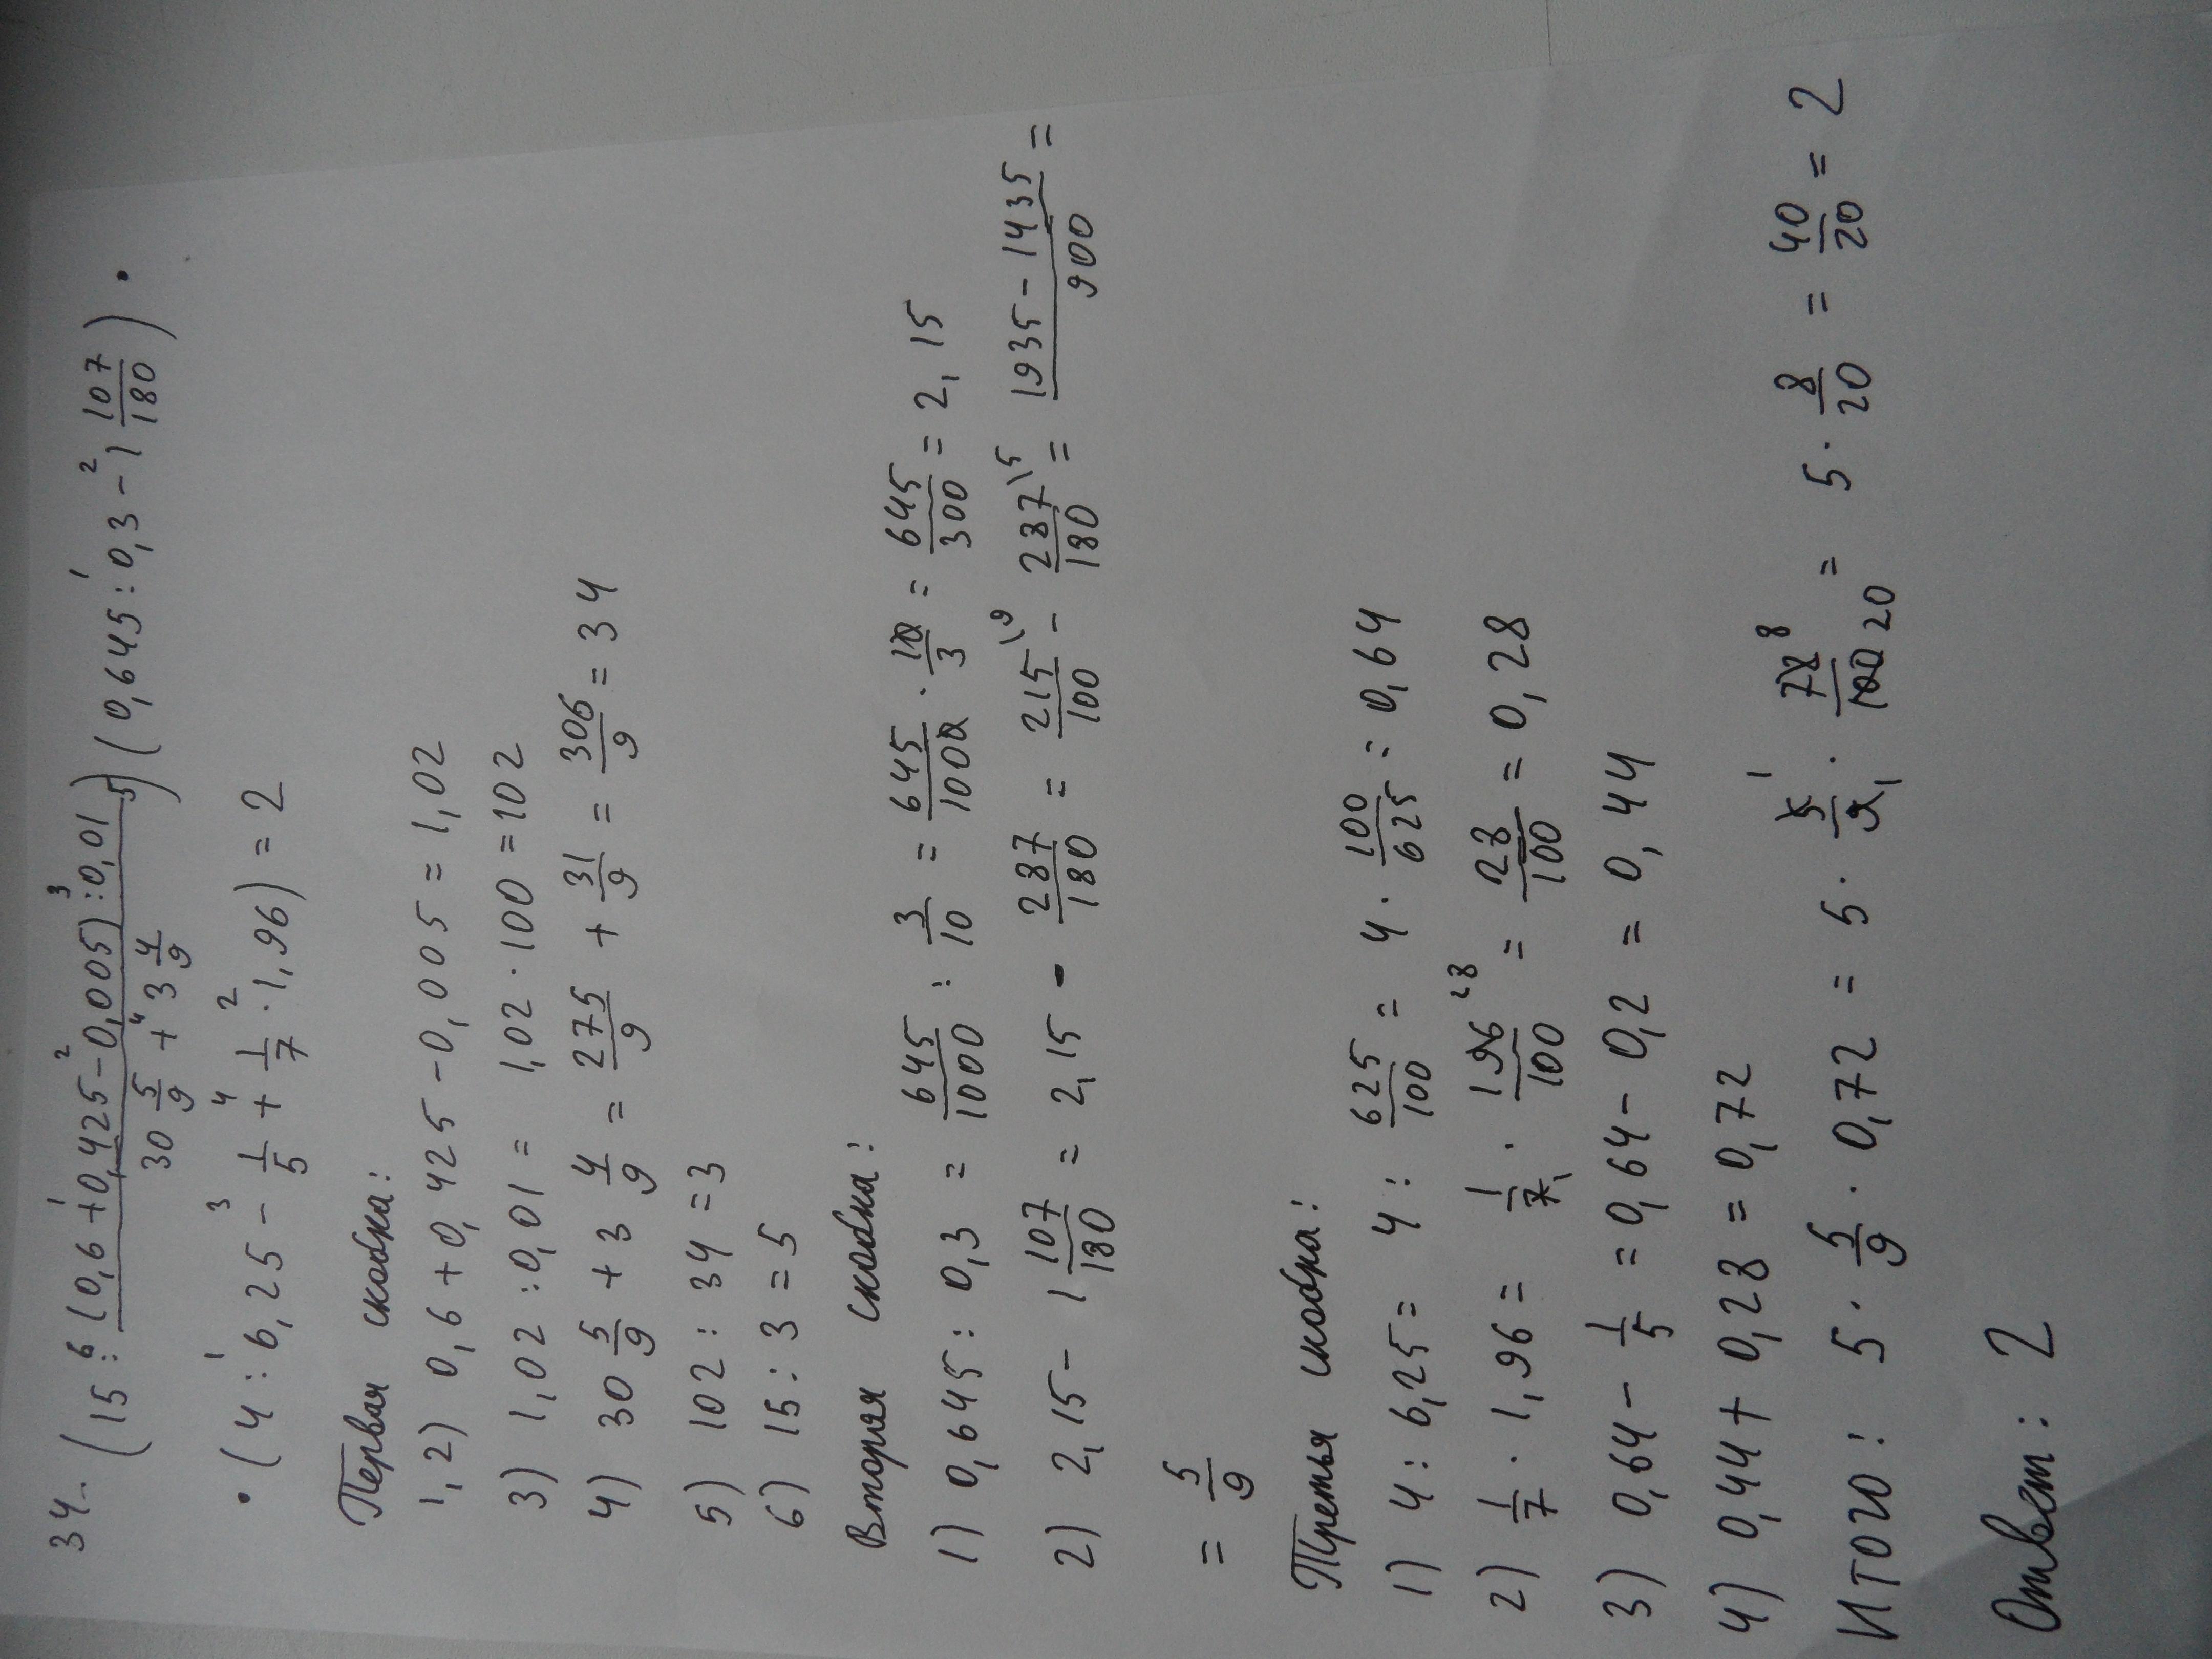 34. (15 :⁶ (0,6 +¹ 0,425 -² 0,005) :³ 0,01 / 30 5/9 +⁴ 3 4/9 ⁵) (0,645 :¹ 0,3 -² 1 107/180) ·
· (4 :¹ 6,25 -³ 1/5 +⁴ 1/7 ·² 1,96) = 2
Первая скобка:
1,2) 0,6 + 0,425 - 0,005 = 1,02
3) 1,02 : 0,01 = 1,02 · 100 = 102
4) 30 5/9 + 3 4/9 = 275/9 + 31/9 = 306/9 = 34
5) 102 : 34 = 3
6) 15 : 3 = 5
Вторая скобка:
1) 0,645 : 0,3 = 645/1000 : 3/10 = 645/1000 · 10/3 = 645/300 = 2,15
2) 2,15 - 1 107/180 = 2,15 - 287/180 = 215/100 \9 - 287/180 \5 = 1935 - 1435/900 =
= 5/9
Третья скобка:
1) 4 : 6,25 = 4 : 625/100 = 4 · 100/625 = 0,64
2) 1/7 · 1,96 = 1/7 1 · 196/100 28 = 28/100 = 0,28
3) 0,64 - 1/5 = 0,64 - 0,2 = 0,44
4) 0,44 + 0,28 = 0,72
Итого: 5 · 5/9 · 0,72 = 5 · 5/9 1 1 · 72/100 8 20 = 5 · 8/20 = 40/20 = 2
Ответ: 2